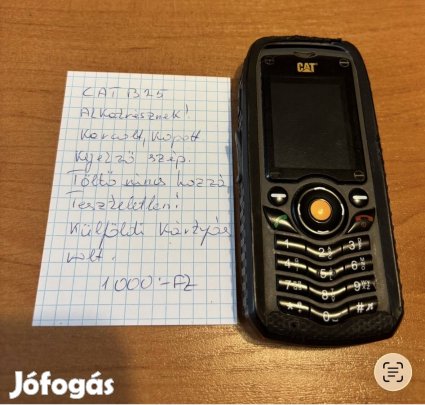 CAT B25
Alkatrésznek!
Karcolt, kopott
Kijelző szép.
Töltő nincs hozzá,
Teszteletlen!
Külföldi kártyás
volt.
1000.-Ft
CAT
1 2 3
4 5 6
7 8 9
* 0 #
Jófogás